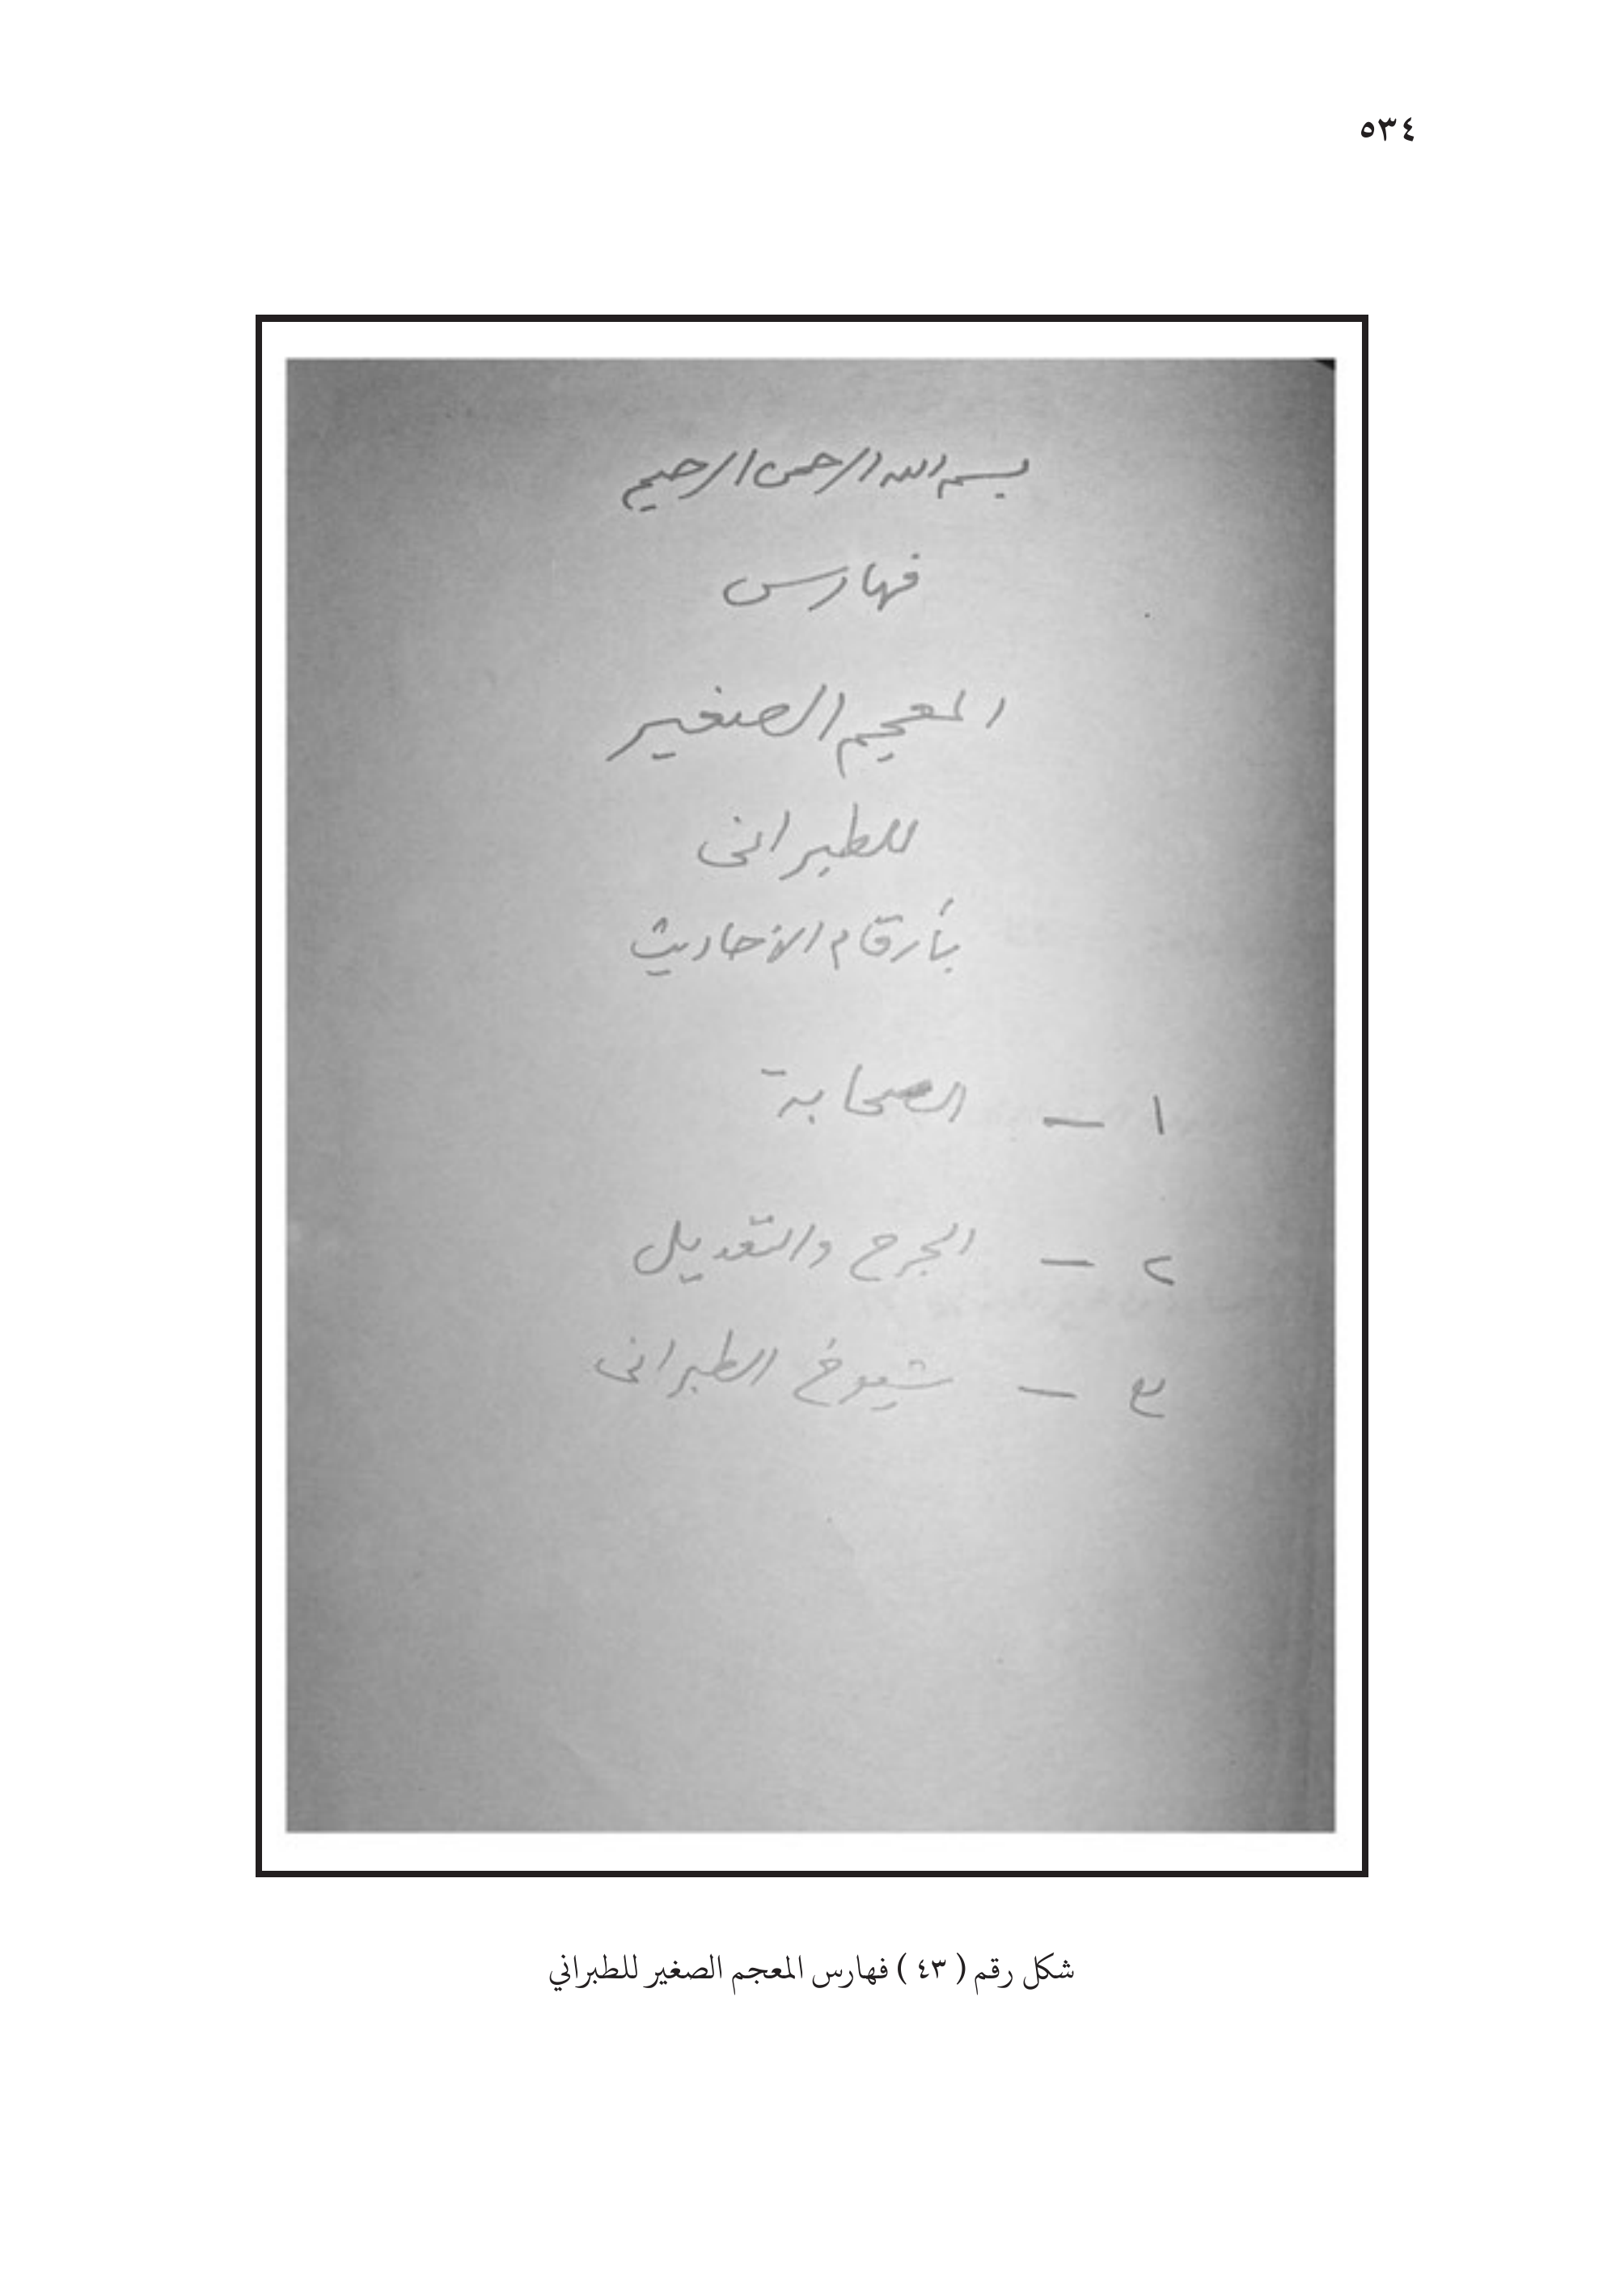 ٥٣٤
بسم الله الرحمن الرحيم
فهارس
المعجم الصغير
للطبرانى
بأرقام الأحاديث
١ - الصحابة
٢ - الجرح والتعديل
٣ - شيوخ الطبرانى
شكل رقم ( ٤٣ ) فهارس المعجم الصغير للطبراني